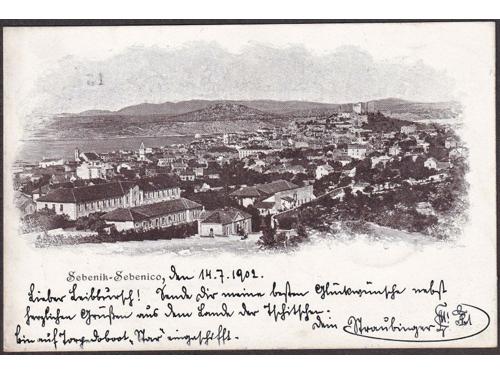 Sebenik-Sebenico, den 14.7.1902.
Lieber Leibbursch! Sende Dir meine besten Glückwünsche nebst
herzlichen Grüßen aus dem Lande der Tschitschen
dein Straubinger
bin auf Torpedoboot „Star" eingeschifft.